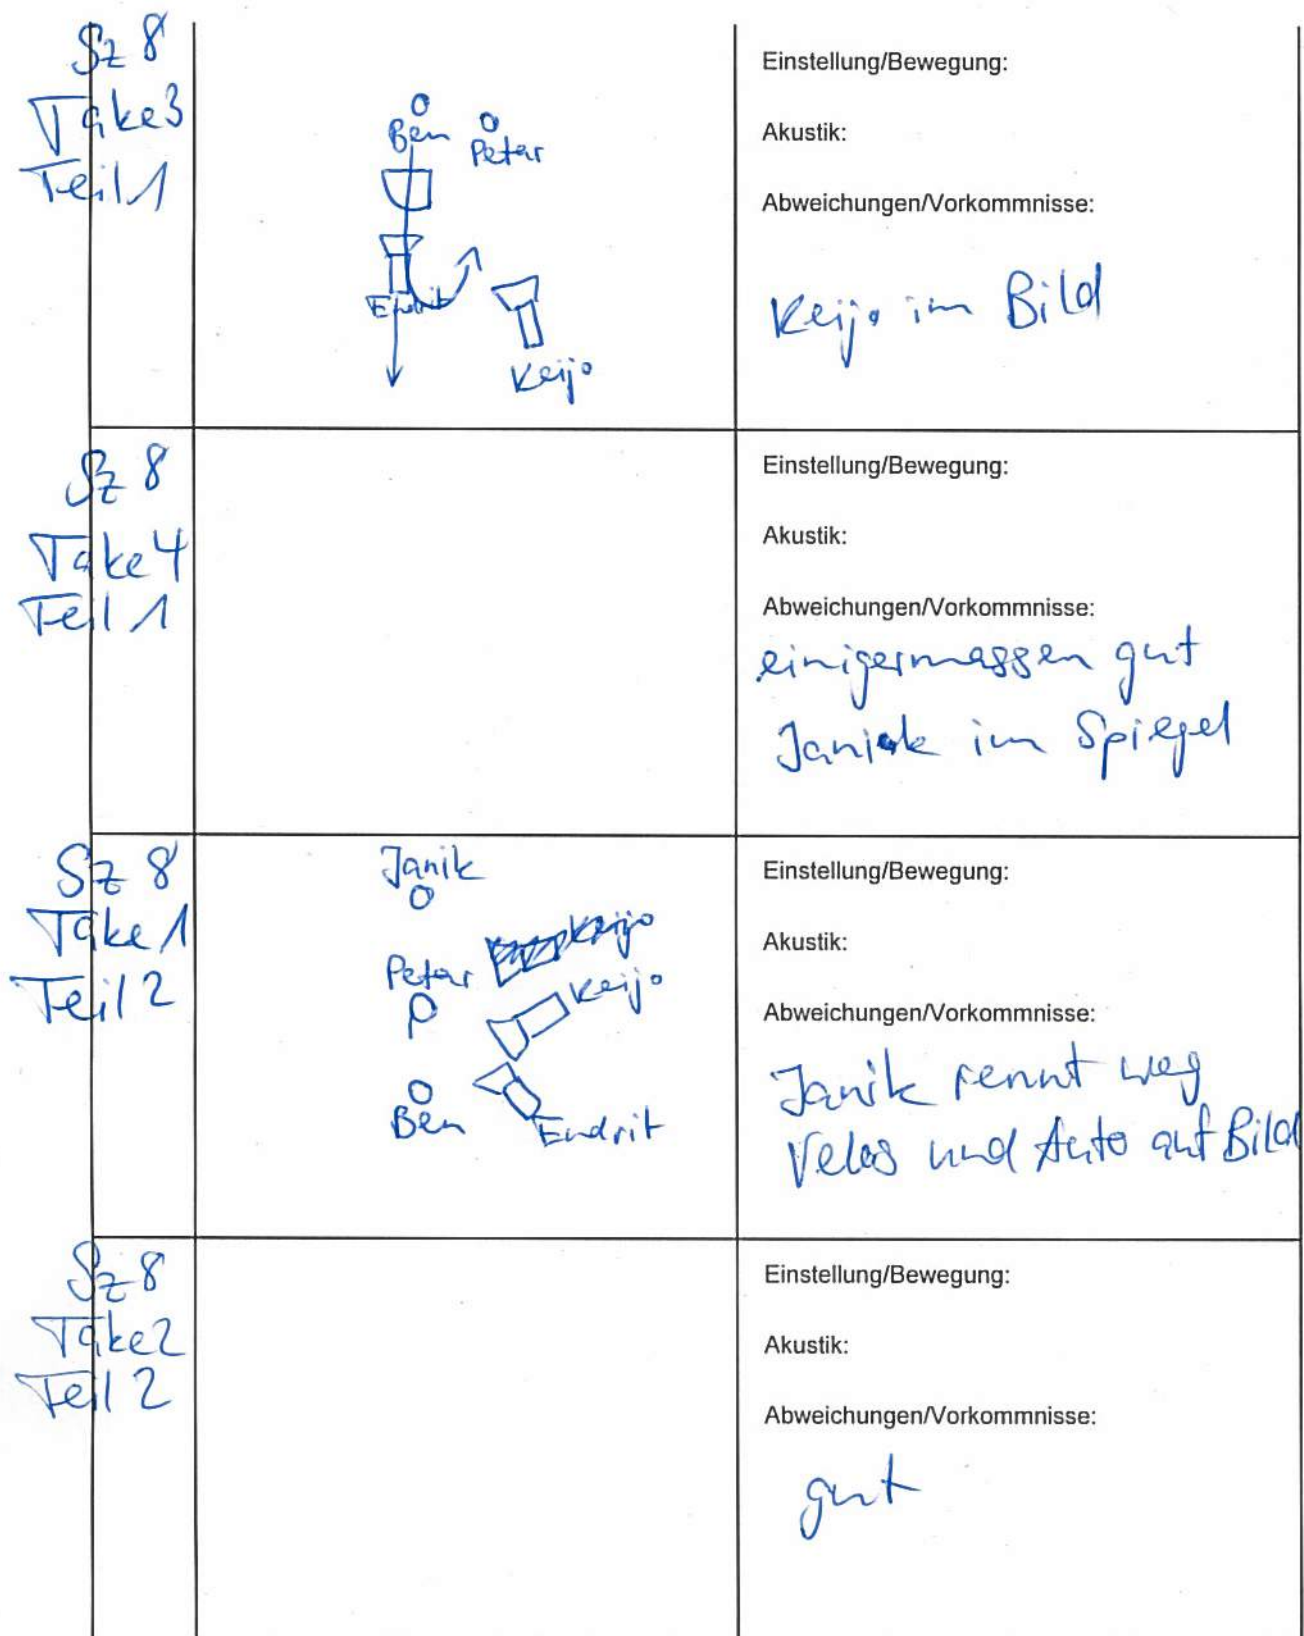 Sz 8
Take 3
Teil 1
Ben
Petar
Endrit
Keijo
Einstellung/Bewegung:
Akustik:
Abweichungen/Vorkommnisse:
Keijo im Bild
Sz 8
Take 4
Teil 1
Einstellung/Bewegung:
Akustik:
Abweichungen/Vorkommnisse:
einigermassen gut
Janik im Spiegel
Sz 8
Take 1
Teil 2
Janik
Keijo
Petar
Keijo
Ben
Endrit
Einstellung/Bewegung:
Akustik:
Abweichungen/Vorkommnisse:
Janik rennt weg
Velos und Auto auf Bild
Sz 8
Take 2
Teil 2
Einstellung/Bewegung:
Akustik:
Abweichungen/Vorkommnisse:
gut